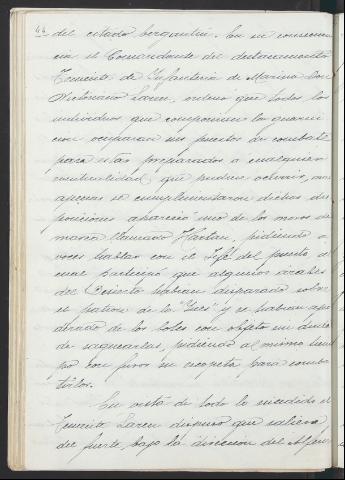 44
del citado bergantin. En su consecuen
cia el Comandante del destacamento
Teniente de Infanteria de Marina Don
Victoriano Laren, ordenó que todos los
individuos que componian la guarni
cion ocuparan sus puestos de combate
para estar preparados a cualquier
eventualidad que pudiera ocurrir,
apenas se cumplimentaron dichas dis
posiciones apareció uno de los moros de
marina llamado pidiendo a
voces hablar con el Jefe del puesto al
cual participó que algunos árabes
del Desierto habian disparado sobre
el patron de la "Ynes" y se habian apo
derado de los botes con objeto sin duda
de saquearlas, pidiendo al mismo tiem
po con furor su escopeta para comba
tirlos.
En vista de todo lo sucedido el
Teniente Laren dispuso que saliera
del fuerte, bajo la direccion del Alferez